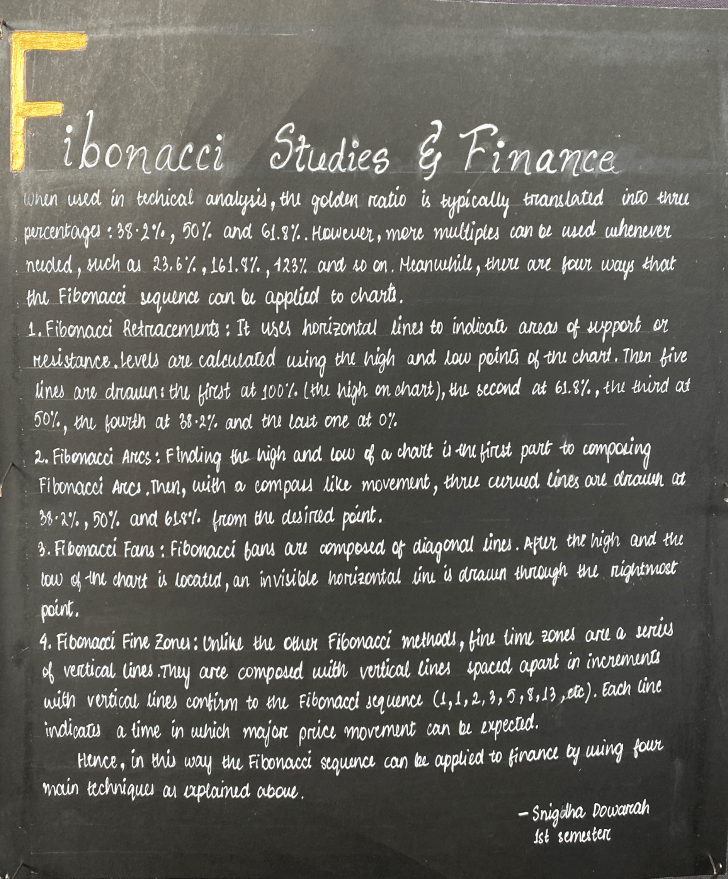 Fibonacci Studies & Finance
When used in techical analysis, the golden ratio is typically translated into three
percentages : 38.2%, 50% and 61.8%. However, more multiples can be used whenever
needed, such as 23.6%, 161.8%, 423% and so on. Meanwhile, there are four ways that
the Fibonacci sequence can be applied to charts.
1. Fibonacci Retracements : It uses horizontal lines to indicate areas of support or
resistance. Levels are calculated using the high and low points of the chart. Then five
lines are drawn : the first at 100% (the high on chart), the second at 61.8%, the third at
50%, the fourth at 38.2% and the last one at 0%.
2. Fibonacci Arcs : Finding the high and low of a chart is the first part to composing
Fibonacci Arcs. Then, with a compass like movement, three curved lines are drawn at
38.2%, 50% and 61.8% from the desired point.
3. Fibonacci Fans : Fibonacci fans are composed of diagonal lines. After the high and the
low of the chart is located, an invisible horizontal line is drawn through the rightmost
point.
4. Fibonacci Fine Zones : Unlike the other Fibonacci methods, fine time zones are a series
of vertical lines. They are composed with vertical lines spaced apart in increments
with vertical lines confirm to the Fibonacci sequence (1,1,2,3,5,8,13,etc). Each line
indicates a time in which major price movement can be expected.
Hence, in this way the Fibonacci sequence can be applied to finance by using four
main techniques as explained above.
- Snigdha Dowarah
1st semester